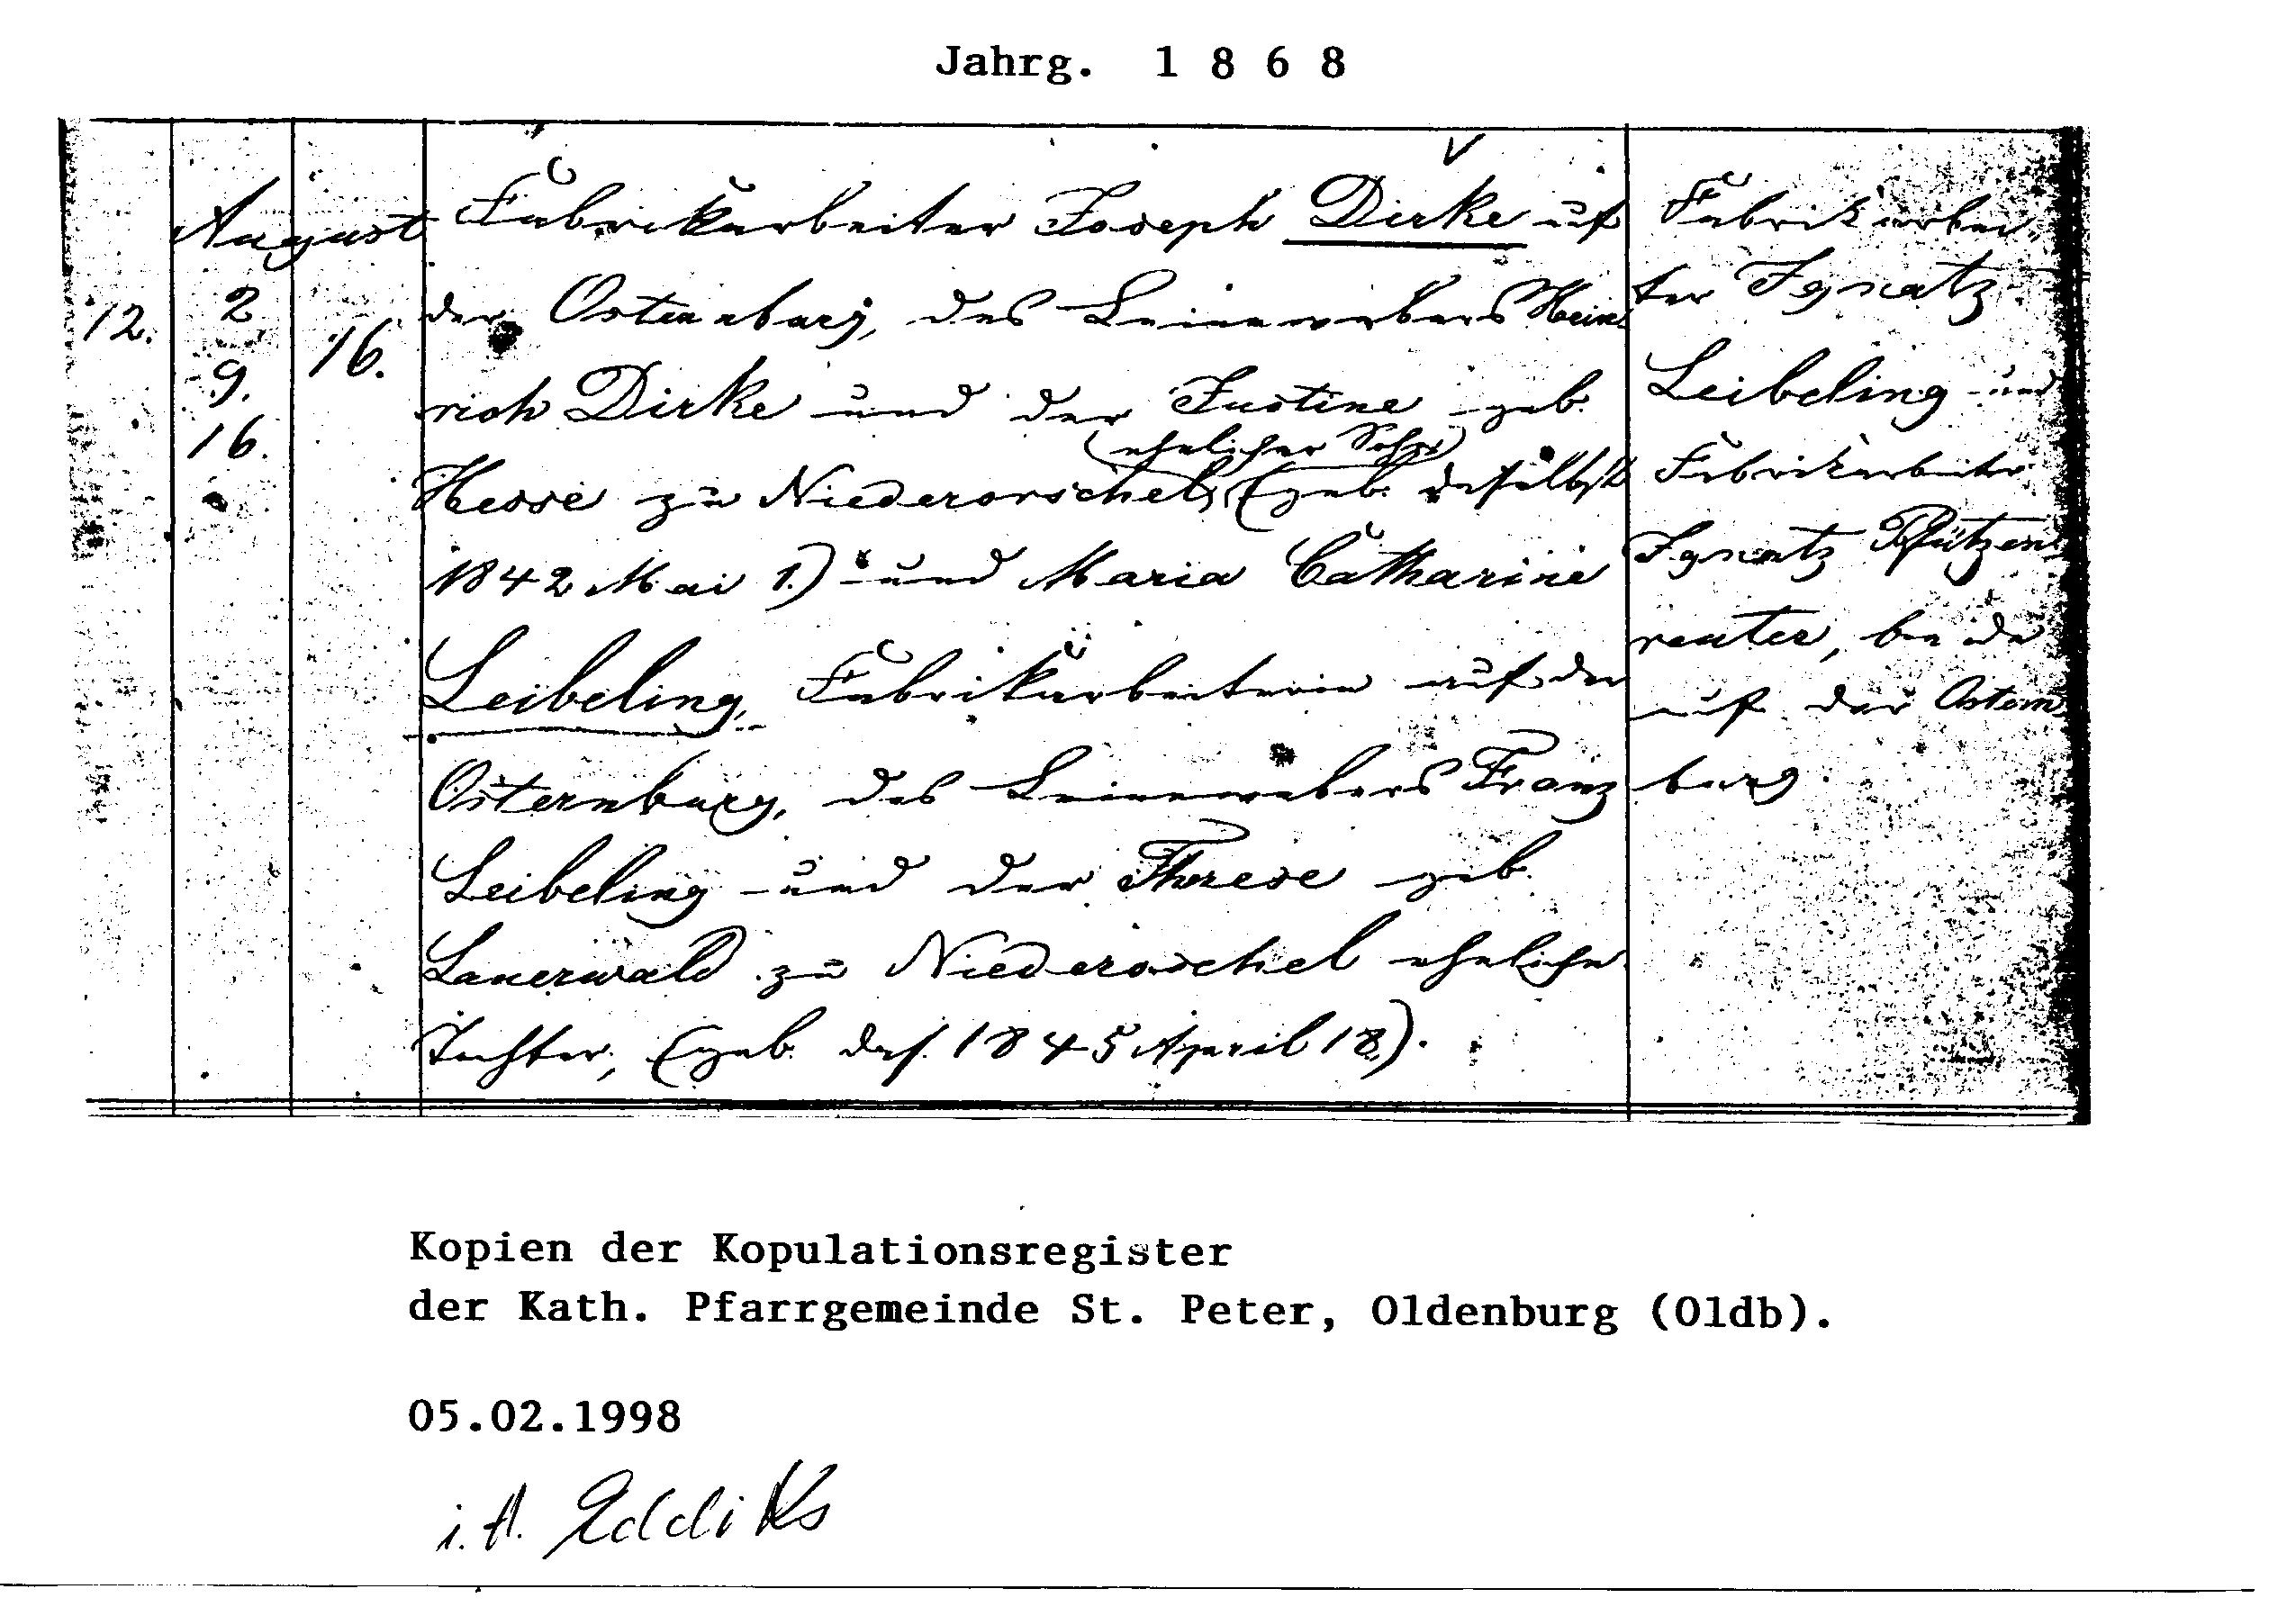 Jahrg. 1868
August
12.
2
9.
16.
16.
Fabrikarbeiter Joseph Dirke auf
der Osternburg, des Leinewebers Hein-
rich Dirke und der Justine geb.
(ehelicher Sohn)
Hesse zu Niederorschel, (geb. daselbst
1842 Mai 1.) und Maria Catharine
Leibeling, Fabrikarbeiterin auf der
Osternburg, des Leinewebers Franz
Leibeling und der Therese geb.
Lauerwald zu Niederorschel eheliche
Tochter, (geb. das. 1845 April 18.).
Fabrikarbei-
ter Ignatz
Leibeling und
Fabrikarbeiter
Ignatz Pfützen-
reuter, beide
auf der Ostern-
burg
Kopien der Kopulationsregister
der Kath. Pfarrgemeinde St. Peter, Oldenburg (Oldb).
05.02.1998
i.A. Eddiks